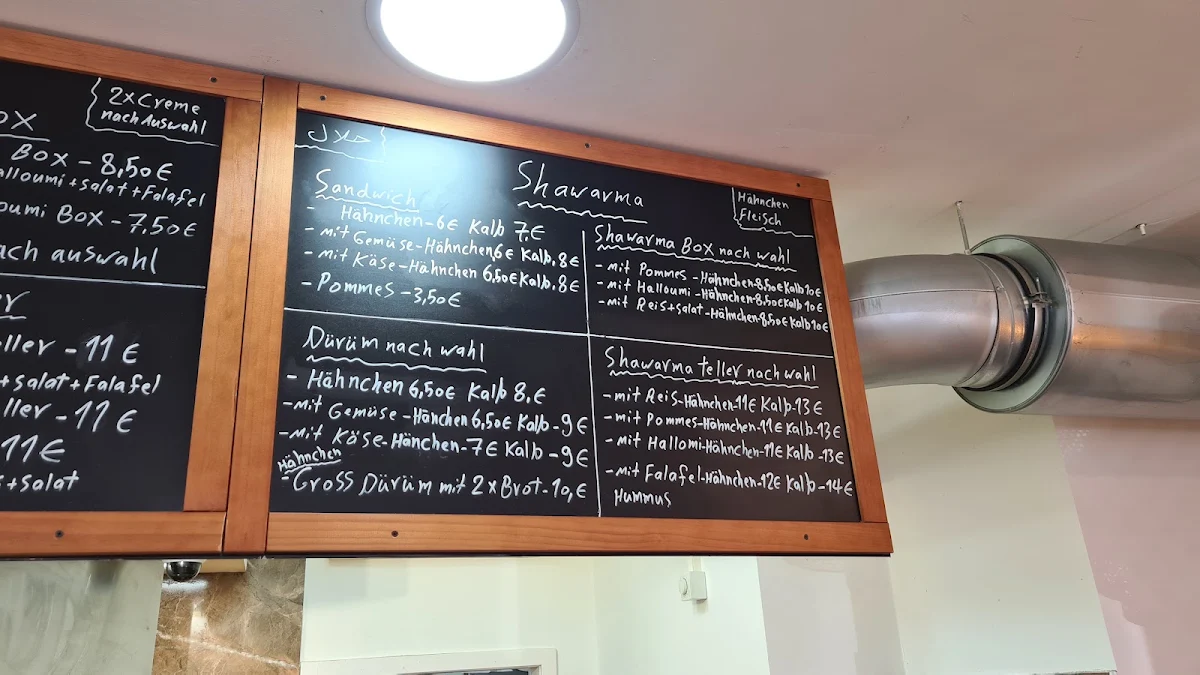 2xCreme
nach Auswahl
OX
BOX - 8,50€
alloumi + salat + Falafel
oumi BOX - 7,50€
ach auswahl
er
eller - 11€
+ salat + Falafel
ller - 11€
11€
s + salat
حلال
Shawarma
Hähnchen
Fleisch
Sandwich
- Hähnchen - 6€ Kalb 7,€
- mit Gemüse - Hähnchen, 6€ Kalb, 8€
- mit Käse - Hähnchen 6,50€ Kalb, 8€
- Pommes - 3,50€
Shawarma Box nach wahl
- mit Pommes - Hähnchen - 8,50€ Kalb 10€
- mit Halloumi - Hähnchen - 8,50€ Kalb 10€
- mit Reis + salat - Hähnchen - 8,50€ Kalb 10€
Dürüm nach wahl
- Hähnchen 6,50€ Kalb 8,€
- mit Gemüse - Hänchen 6,50€ Kalb - 9€
- mit Käse - Hänchen - 7€ Kalb - 9€
Hähnchen
- Gross Dürüm mit 2x Brot - 10,€
Shawarma teller nach wahl
- mit Reis - Hähnchen - 11€ Kalb - 13€
- mit Pommes - Hähnchen - 11€ Kalb - 13€
- mit Hallomi - Hähnchen - 11€ Kalb - 13€
- mit Falafel - Hähnchen - 12€ Kalb - 14€
Hummus